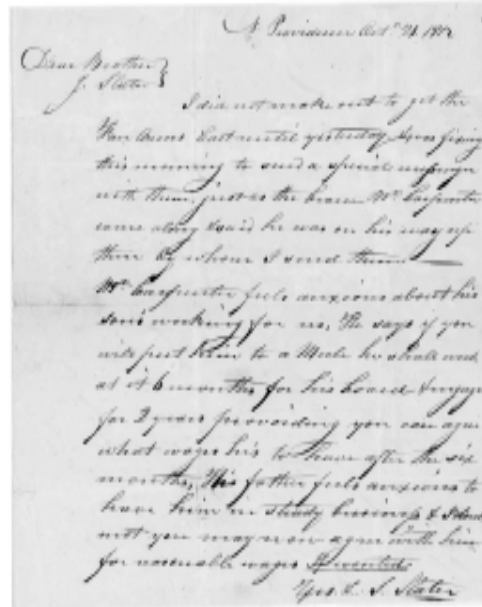 N Providence Oct 21
Dear Brother
J. Slater
I did not make out to get the
until yesterday & was fixing
this morning to send a special
with them, just as the Mr Carpenter
came along & said he was on his way up
there by whom I send them
Mr Carpenter feels anxious about his
sons working for us, He says if you
will put him to a Mule he shall work
at it 6 months for his board & engage
for 2 years providing you can agree
what wages his to have after the six
months, His father feels anxious to
have him in steady business & I doubt
not you may now agree with him
for reasonable wages if wanted
Yrs &c S. Slater